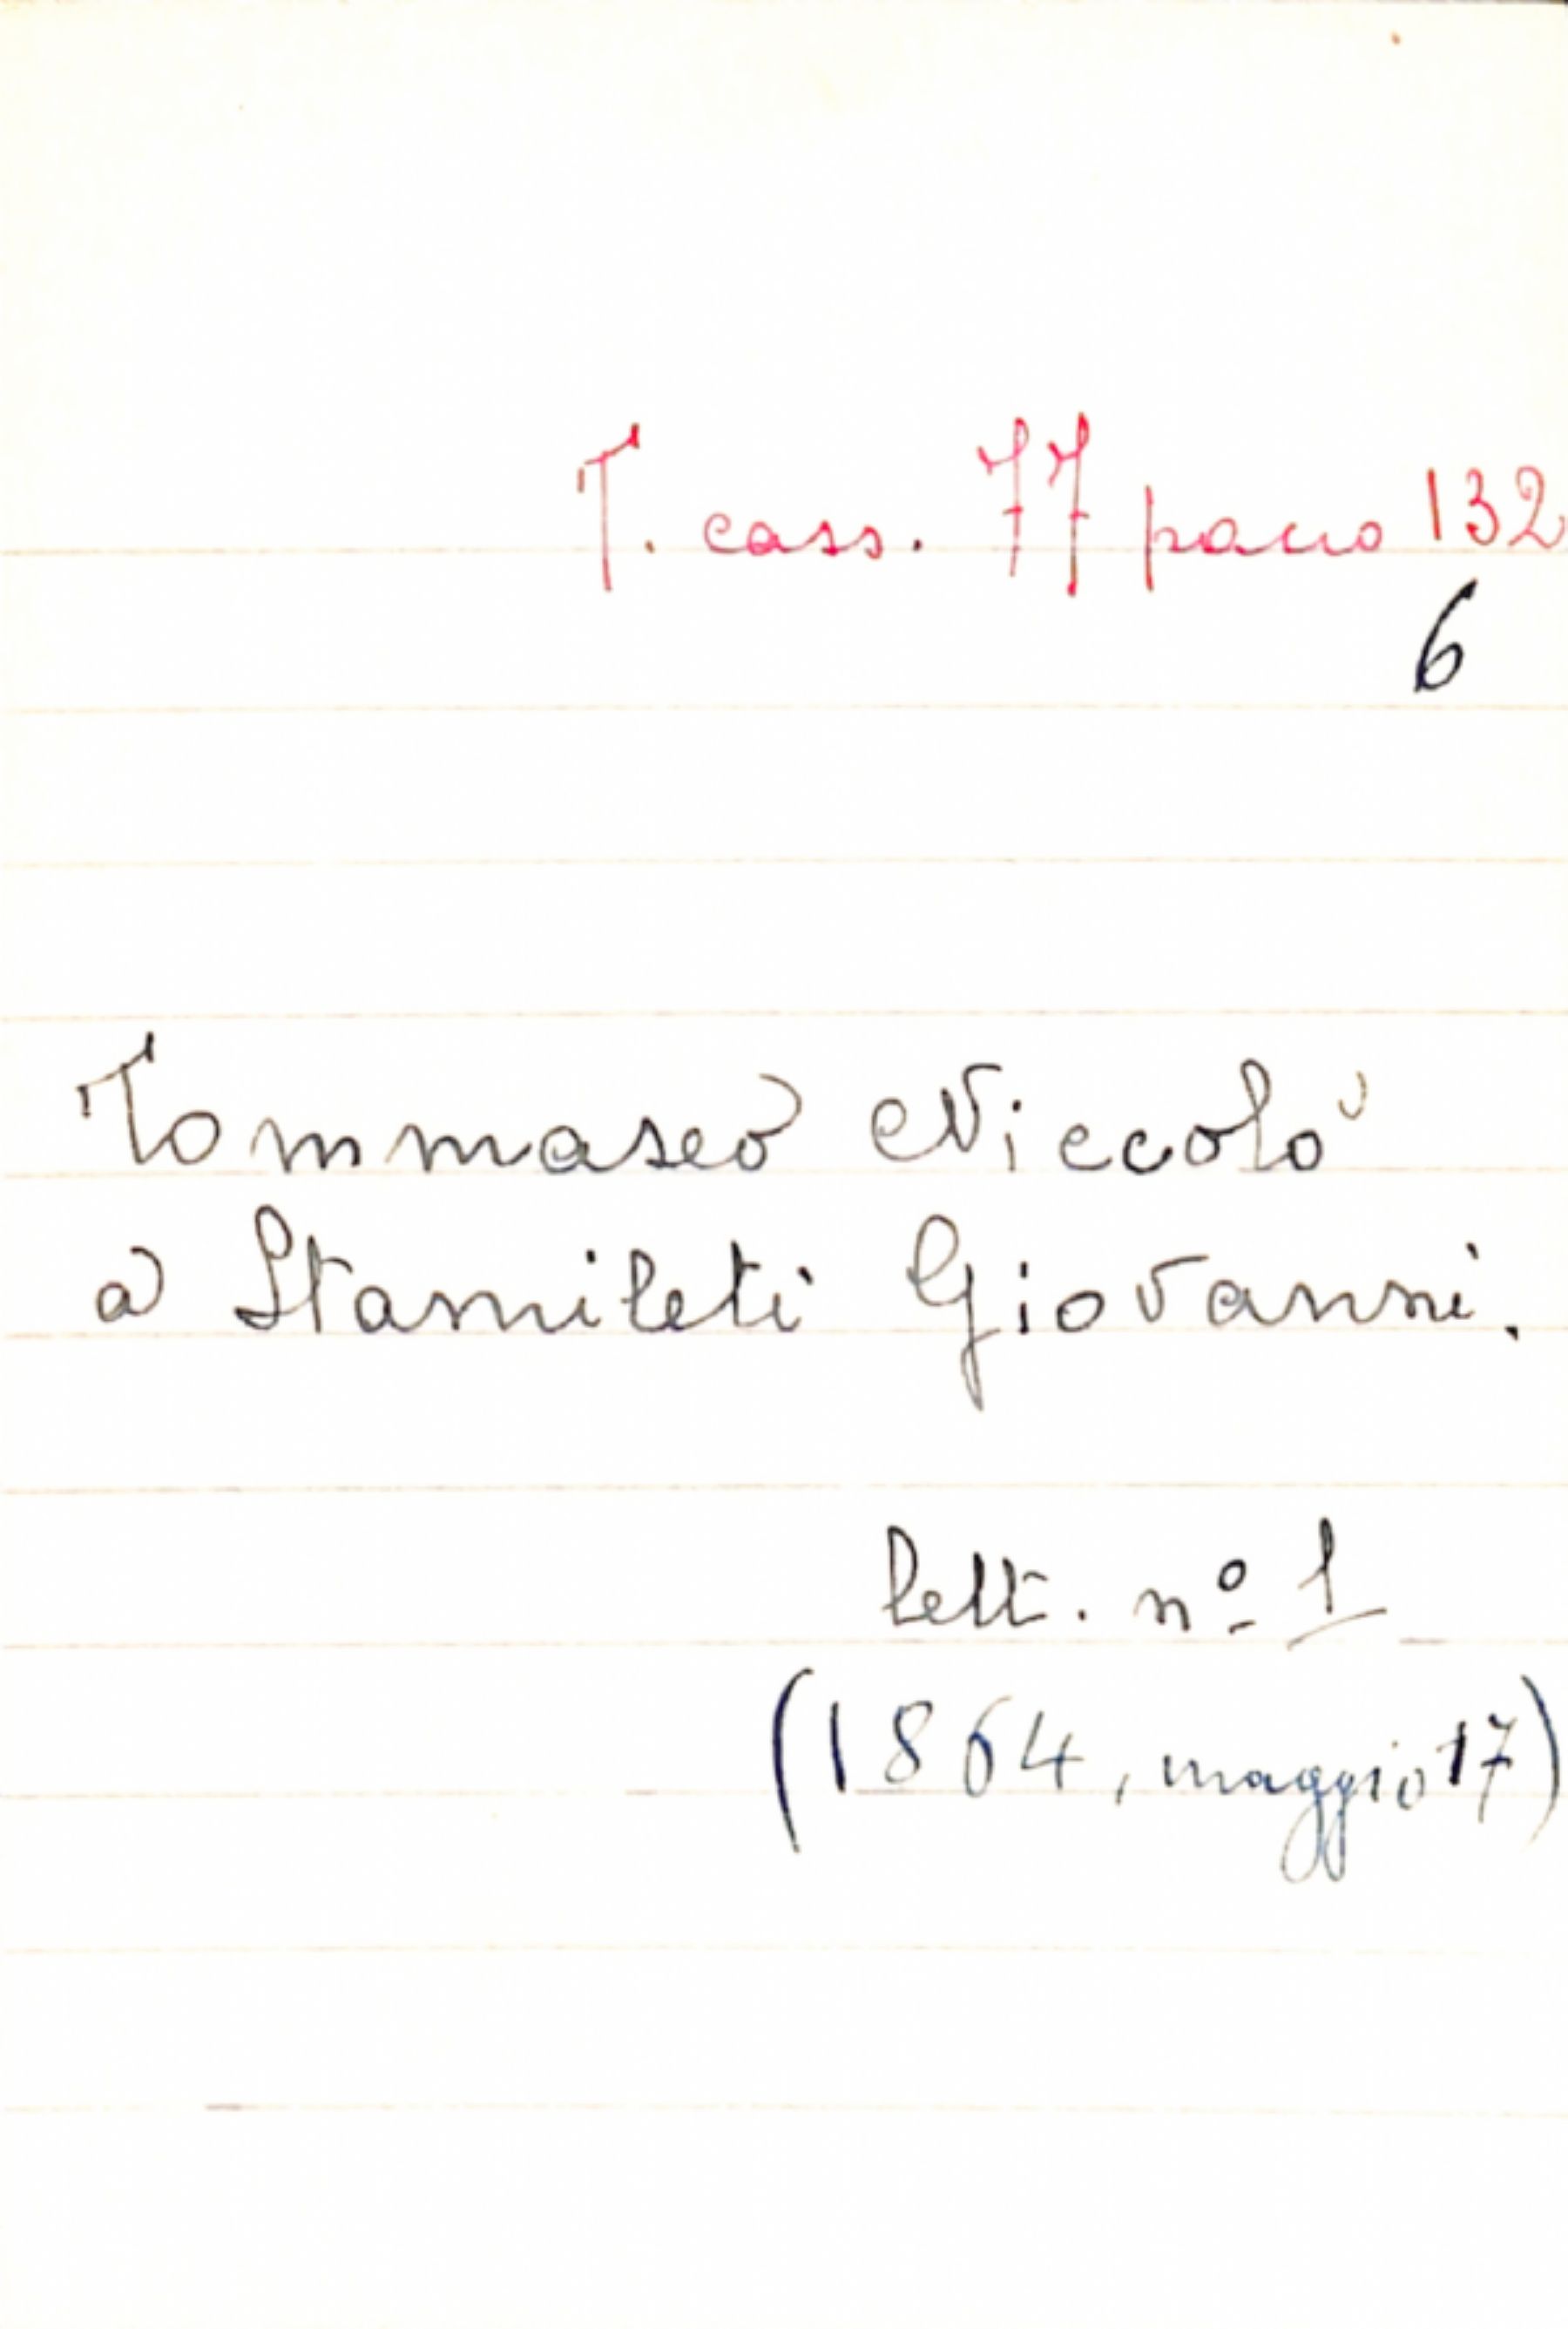 T. cass. 77 pacco 132
6
Tommaseo Niccolò
a Stamileti Giovanni.
lett. nº 1
(1864, maggio 17)